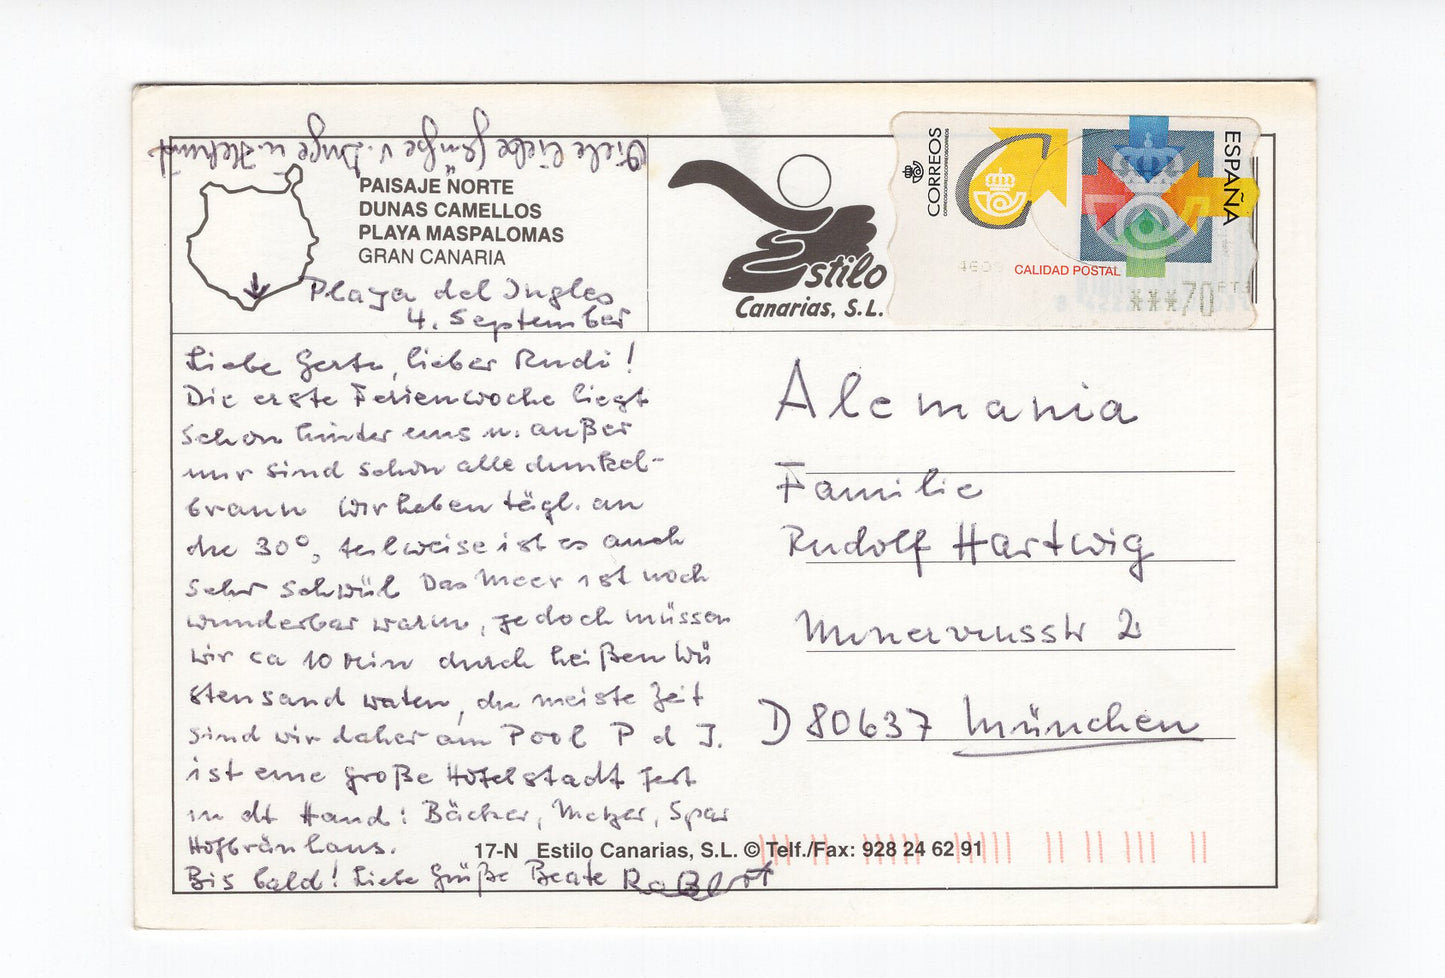 Viele liebe Grüße v. Inge u. Helmut
PAISAJE NORTE
DUNAS CAMELLOS
PLAYA MASPALOMAS
GRAN CANARIA
Playa del Ingles
4. September
Estilo
Canarias, S.L.
CORREOS
ESPAÑA
CALIDAD POSTAL
***70 PTS
Liebe Gerta, lieber Rudi!
Die erste Ferienwoche liegt
schon hinter uns u. außer
mir sind schon alle dunkel-
braun Wir haben tägl. an
die 30°, teilweise ist es auch
sehr schwül Das Meer ist noch
wunderbar warm, jedoch müssen
wir ca 10 Min durch heißen Wü
stensand waten, die meiste Zeit
sind wir daher am Pool P d I.
ist eine große Hotelstadt fest
in dt Hand: Bäcker, Metzger, Spar
Hofbräuhaus.
Bis bald! Liebe Grüße Beate
Alemania
Familie
Rudolf Hartwig
Minerviusstr 2
D 80637 München
17-N Estilo Canarias, S.L. © Telf./Fax: 928 24 62 91